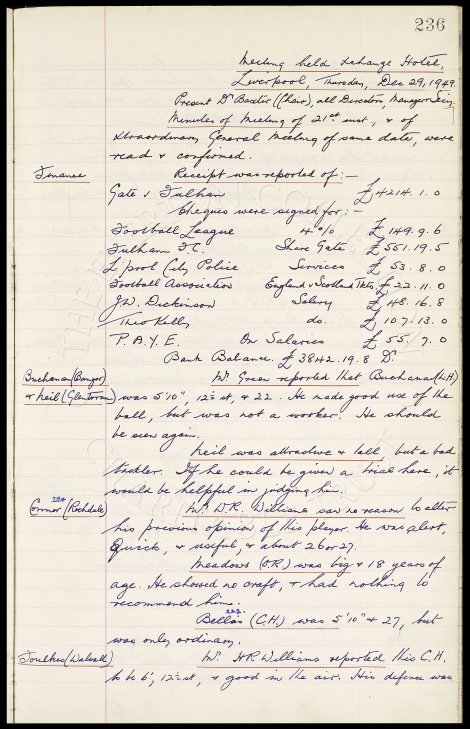 236
Meeting held Xchange Hotel,
Liverpool, Thursday, Dec 29, 1949.
Present Dr Baxter (Chair), all Directors, Manager & Secy.
Minutes of Meeting of 21st inst., & of
Xtraordinary General Meeting of same date, were
read & confirmed.
Finance Receipt was reported of:-
Gate v Fulham £4214. 1. 0
Cheques were signed for:-
Football League 4% £ 149. 9. 6
Fulham F.C. Share Gate £ 551. 19. 5
L'pool City Police Services £ 53. 8. 0
Football Association England v Scotland Tkts. £ 22. 11. 0
J.W. Dickinson Salary £ 148. 16. 8
Theo Kelly do. £ 107. 13. 0
P.A.Y.E. On Salaries £ 55. 7. 0
Bank Balance. £3842. 19. 8 Dr.
Buchanan (Bangor) Mr. Green reported that Buchanan (L.H.)
& Neil (Glentoran) was 5'10", 12½ st, & 22. He made good use of the
ball, but was not a worker. He should
be seen again.
Neil was attractive & tall, but a bad
tackler. If he could be given a trial here, it
would be helpful in judging him.
224
Conner (Rochdale) Mr. W.R. Williams saw no reason to alter
his previous opinion of this player. He was alert,
Quick, & useful, & about 26 or 27.
Meadows (O.R.) was big & 18 years of
age. He showed no craft, & had nothing to
recommend him.
222.
Bellas (C.H.) was 5'10" & 27, but
was only ordinary.
Foulkes (Walsall) Mr. H.R. Williams reported this C.H.
to be 6', 12½ st, & good in the air. His defence was